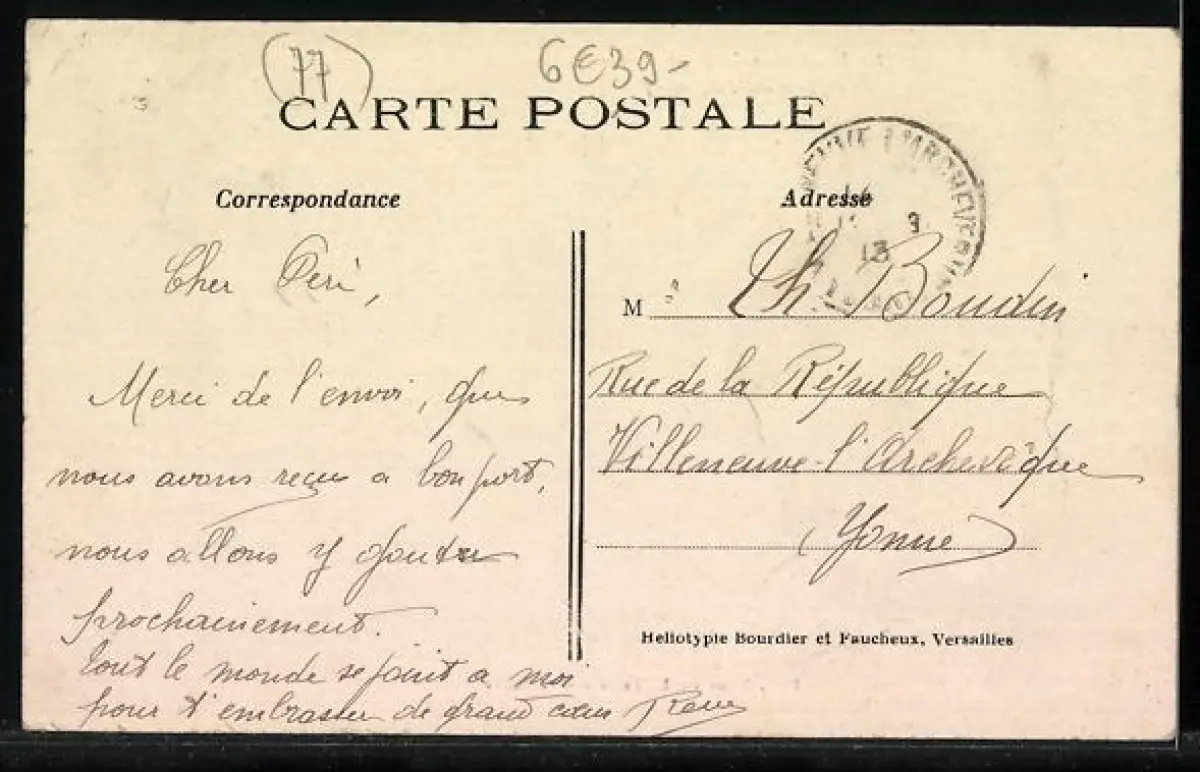 (77)
6€39-
CARTE POSTALE
Correspondance
Adresse
Cher Péri,
Merci de l'envoi, que
nous avons reçu a bon port,
nous allons y gouter
prochainement.
tout le monde se joint a moi
pour t'embrasser de grand cœur
M Th. Boudin
Rue de la République
Villeneuve-l'Archevêque
(Yonne)
Heliotypie Bourdier et Faucheux, Versailles